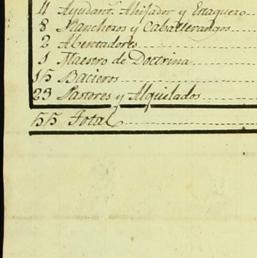 4 Ayudant. Ahijador y Estaquero
8 Rancheros y Caballerangos
2 Abentadores
1 Maestro de Doctrina
15 Bacieros
23 Pastores y Alquilados
55 Total